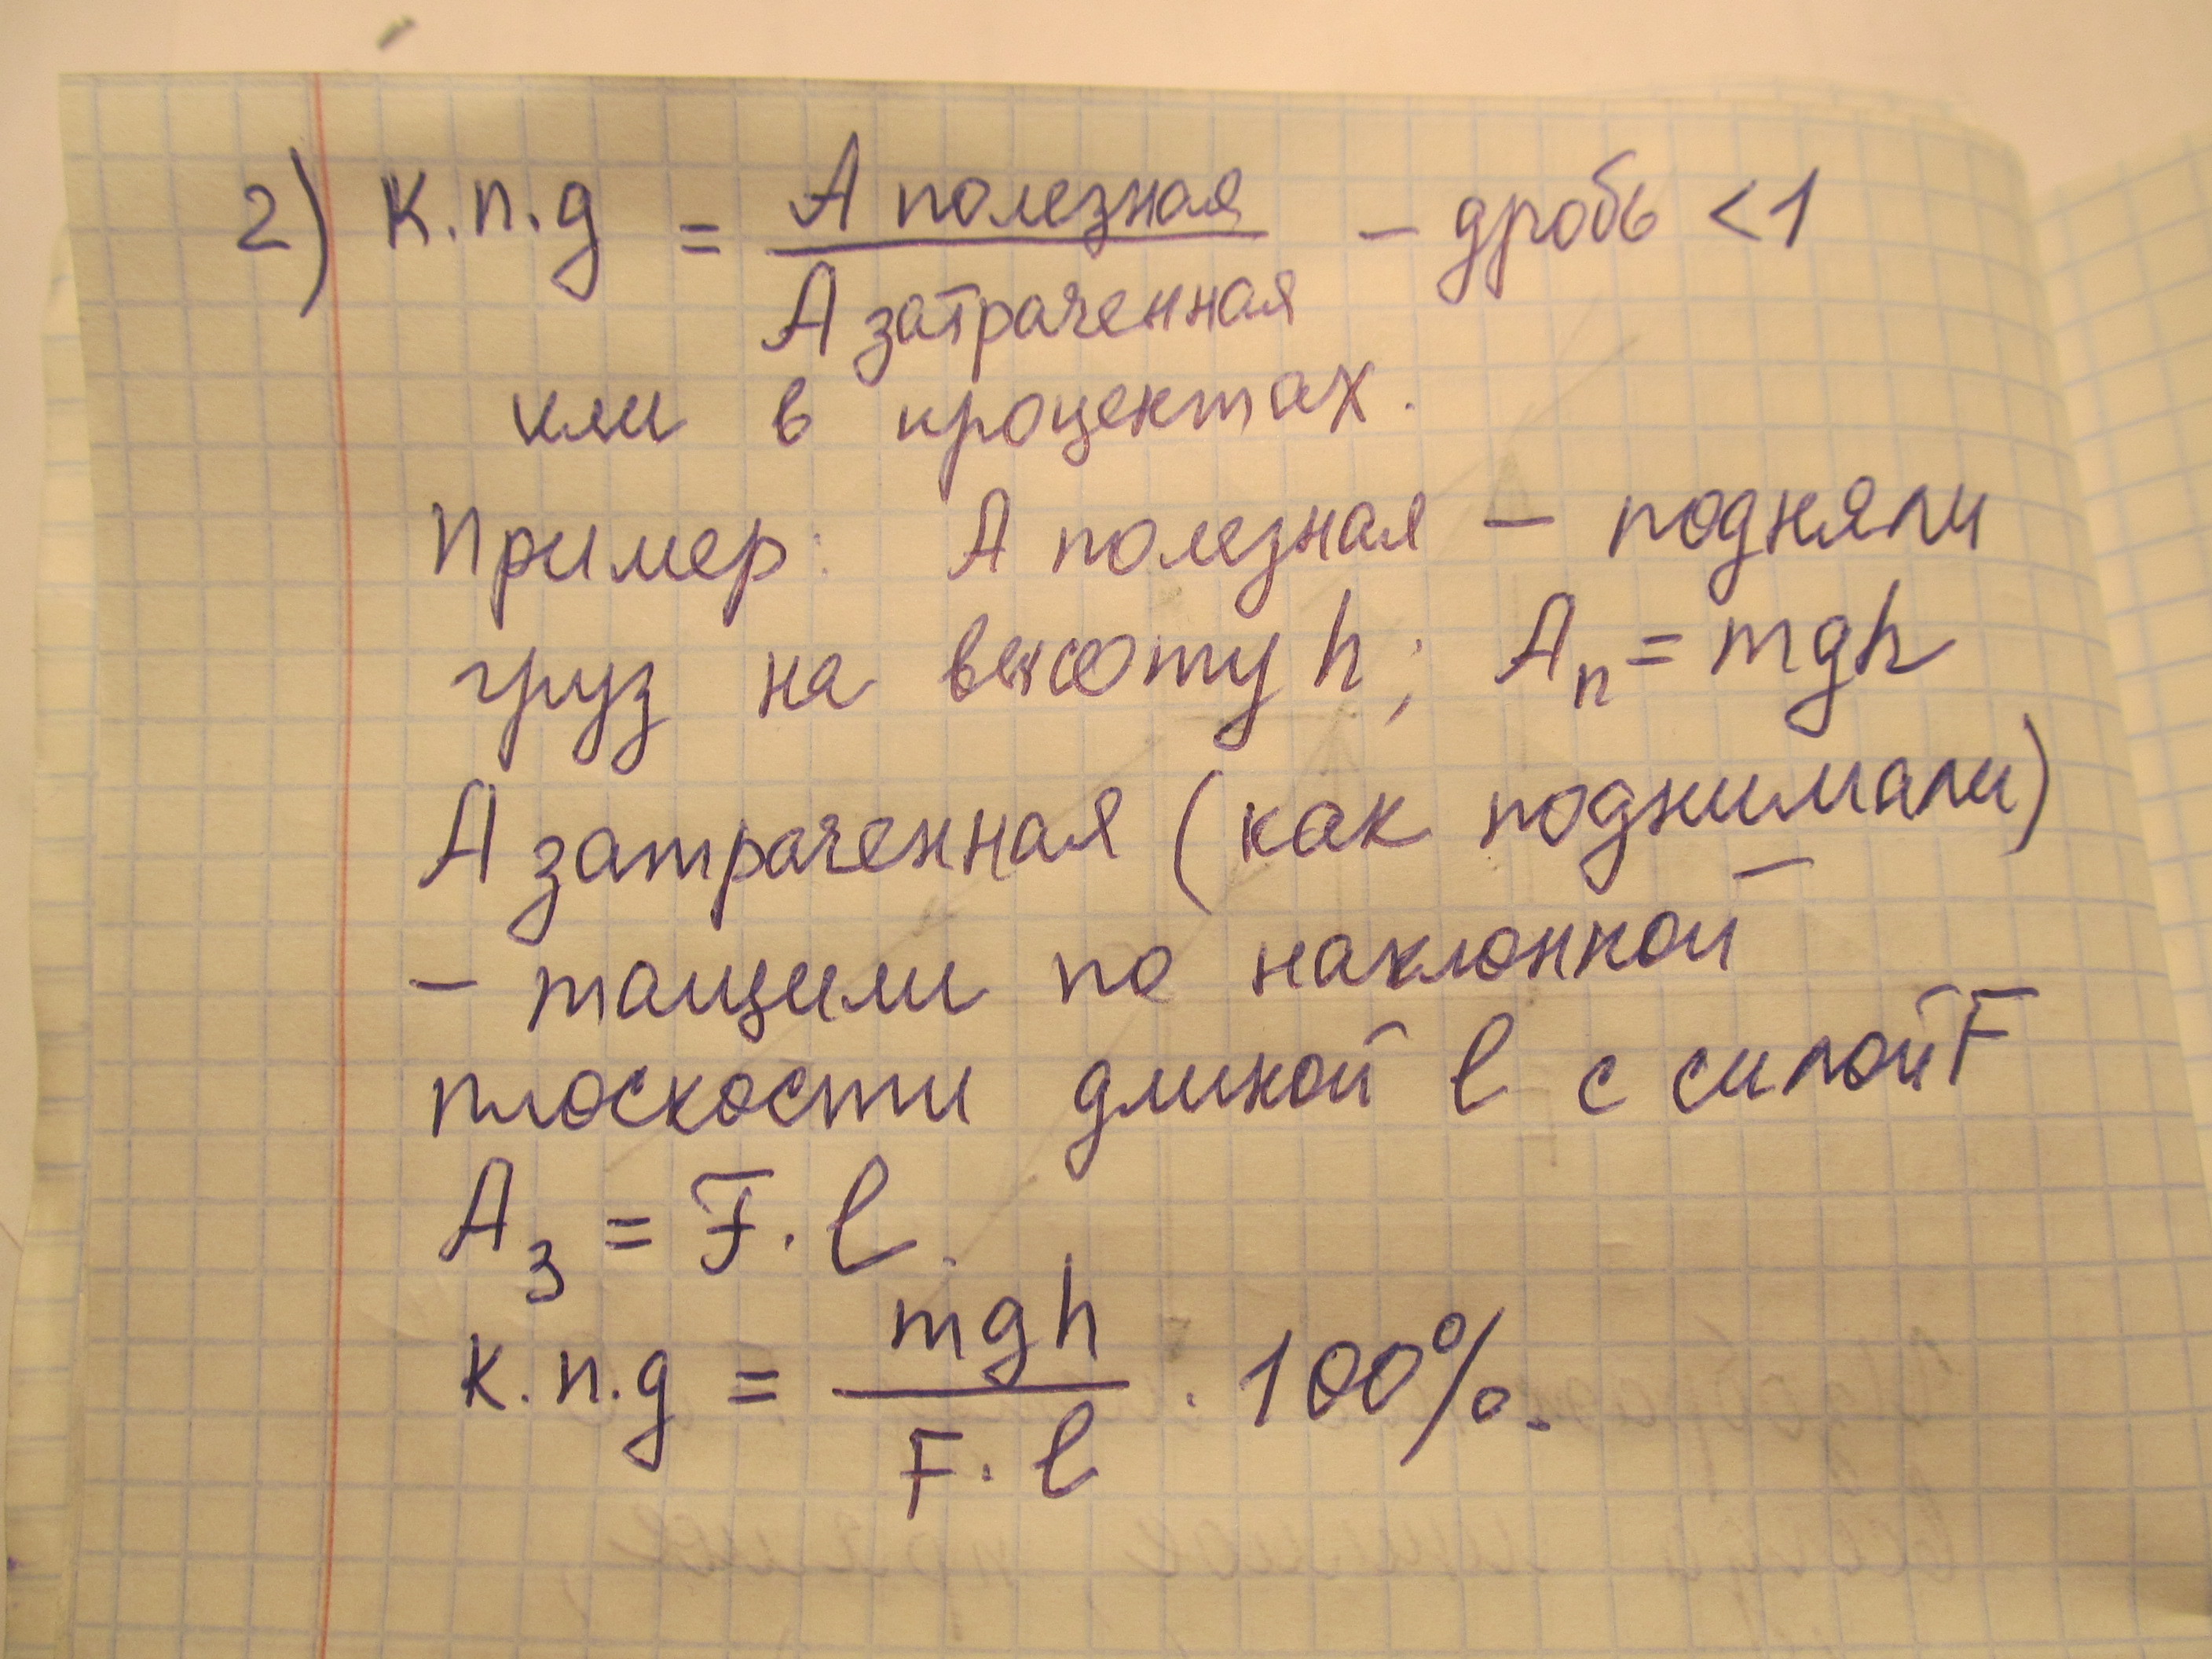 2) к.п.д = А полезная / А затраченная – дробь < 1
или в процентах.
Пример: А полезная – подняли
груз на высоту h; Aп = mgh
А затраченная (как поднимали)
– тащили по наклонной
плоскости длиной l с силой F
Aз = F · l.
к.п.д = mgh / F · l · 100%.